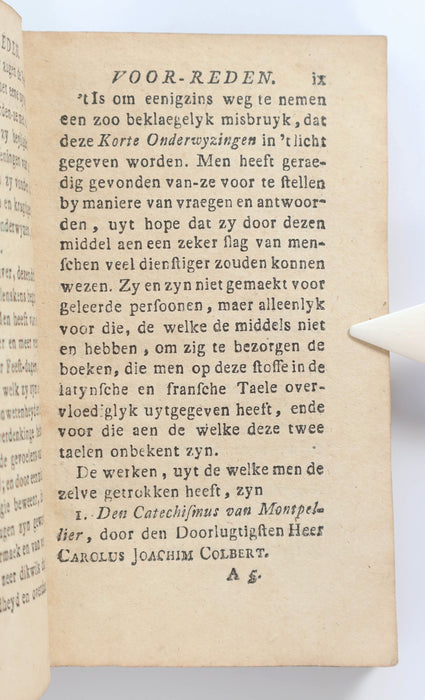 VOOR-REDEN. ix
'tIs om eenigzins weg te nemen
een zoo beklaegelyk misbruyk, dat
deze Korte Onderwyzingen in 't licht
gegeven worden. Men heeft gerae-
dig gevonden van-ze voor te ſtellen
by maniere van vraegen en antwoor-
den, uyt hope dat zy door dezen
middel aen een zeker ſlag van men-
ſchen veel dienſtiger zouden konnen
wezen. Zy en zyn niet gemaekt voor
geleerde perſoonen, maer alleenlyk
voor die, de welke de middels niet
en hebben, om zig te bezorgen de
boeken, die men op deze ſtoffe in de
latynſche en franſche Taele over-
vloediglyk uytgegeven heeft, ende
voor die aen de welke deze twee
taelen onbekent zyn.
De werken, uyt de welke men de
zelve getrokken heeft, zyn
1. Den Catechiſmus van Montpel-
lier, door den Doorlugtigſten Heer
CAROLUS JOACHIM COLBERT.
A 5.